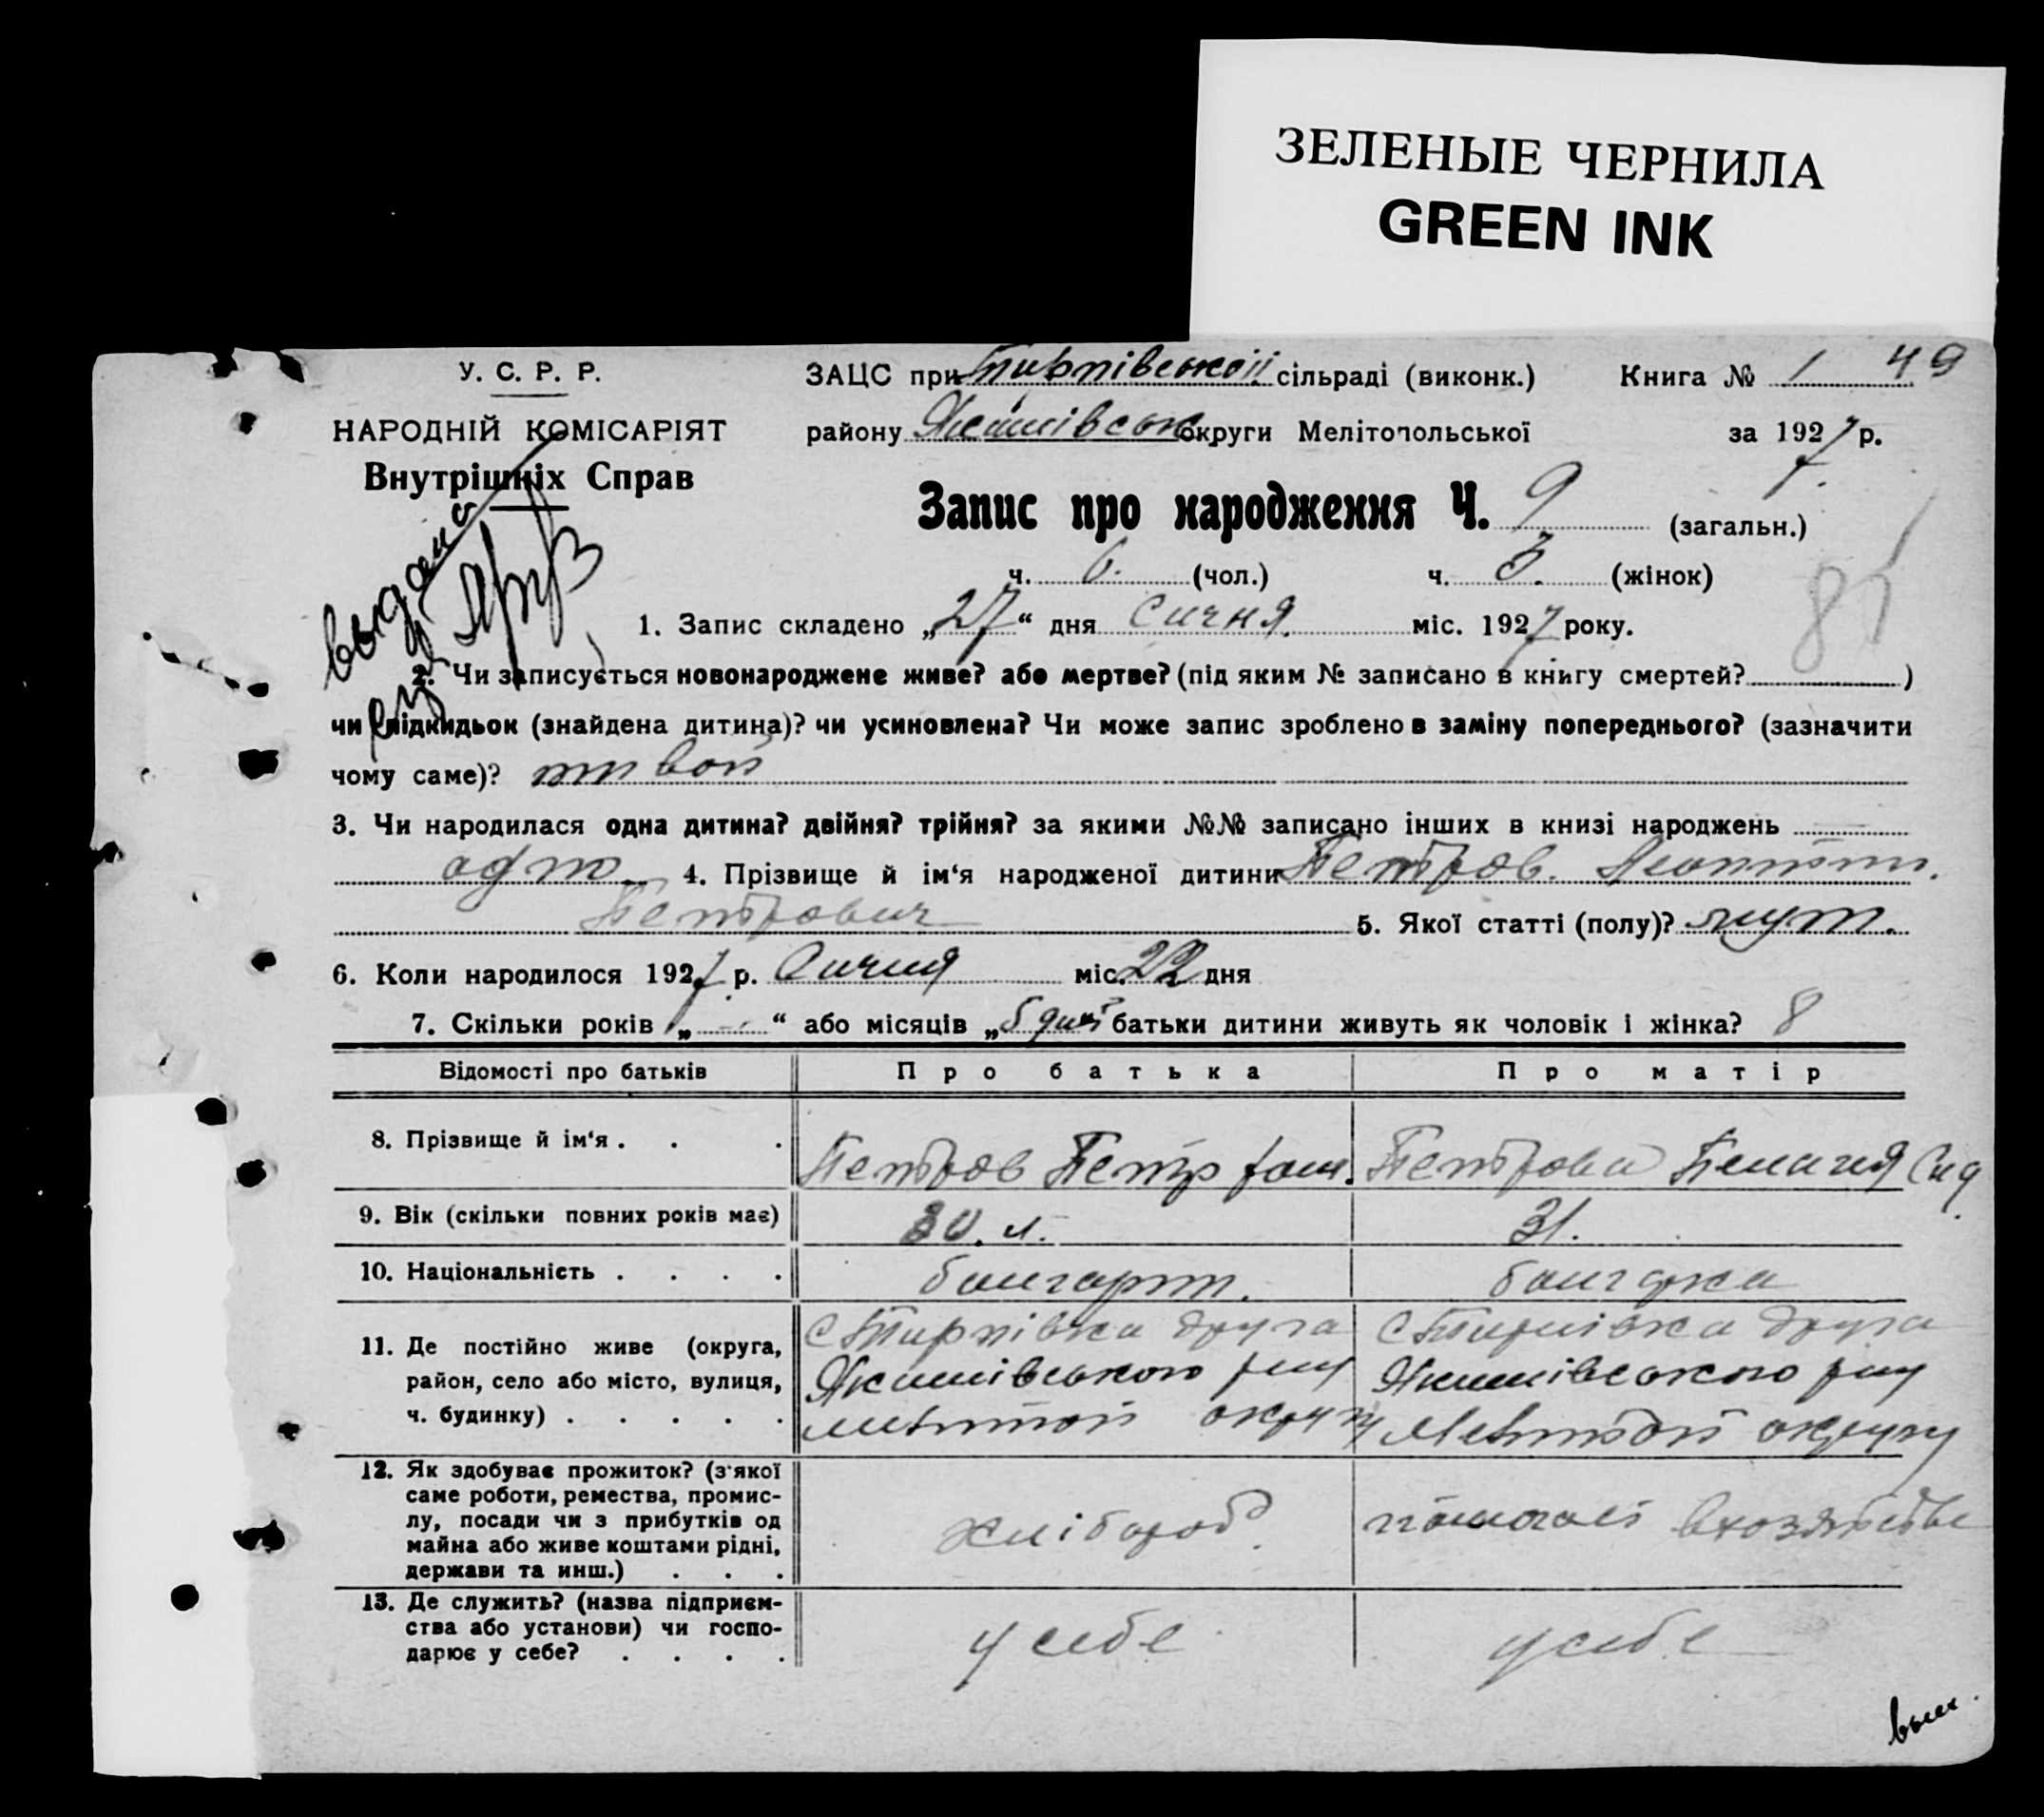 ЗЕЛЕНЫЕ ЧЕРНИЛА
GREEN INK
У. С. Р. Р.
НАРОДНІЙ КОМІСАРІЯТ
Внутрішніх Справ
выдано
ЗАЦС при сільраді (виконк.) Книга № 1 49
району Якимівськ округи Мелітопольської за 1927 р.
Запис про народження Ч. 9 (загальн.)
ч. 6. (чол.) ч. 3. (жінок)
85
1. Запис складено „27“ дня Січня. міс. 1927 року.
2. Чи записується новонароджене живе? або мертве? (під яким № записано в книгу смертей? )
чи підкидьок (знайдена дитина)? чи усиновлена? Чи може запис зроблено в заміну попереднього? (зазначити
чому саме)? живой
3. Чи народилася одна дитина? двійня? трійня? за якими №№ записано інших в книзі народжень
одно 4. Прізвище й ім‘я народженої дитини Петров.
Петрович 5. Якої статті (полу)? муж.
6. Коли народилося 1927 р. Січня міс. 22 дня
7. Скільки років „ “ або місяців „ батьки дитини живуть як чоловік і жінка? 8
Відомості про батьків Про батька Про матір
8. Прізвище й ім‘я . . . Петров Петр Петрова Пелагия Сид
9. Вік (скільки повних років має) 30. л. 31.
10. Національність . . . . болгарин. болгарка
11. Де постійно живе (округа, с Тирнівка друга с Тирнівка друга
район, село або місто, вулиця, Якимівського рну Якимівського рну
ч. будинку) . . . . . Мелітоп округу Мелітоп округу
12. Як здобуває прожиток? (з‘якої
саме роботи, ремества, промис-
лу, посади чи з прибутків од хлібороб помогает в хозяйстве
майна або живе коштами рідні,
держави та инш.) . . .
13. Де служить? (назва підприєм-
ства або установи) чи госпо- у себе у себе
дарює у себе? . . . .